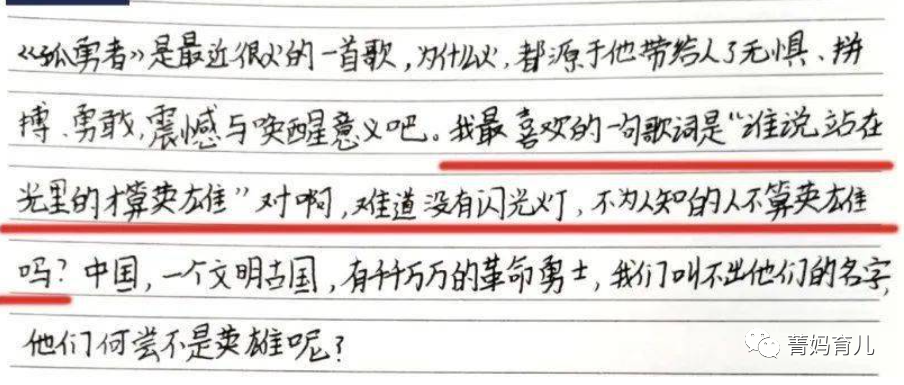 《孤勇者》是最近很火的一首歌，为什么火，都源于他带给人了无惧、拼
搏、勇敢，震憾与唤醒意义吧。我最喜欢的一句歌词是“谁说站在
光里的才算英雄”对啊，难道没有闪光灯，不为人知的人不算英雄
吗？中国，一个文明古国，有千千万万的革命勇士，我们叫不出他们的名字，
他们何尝不是英雄呢？
菁妈育儿